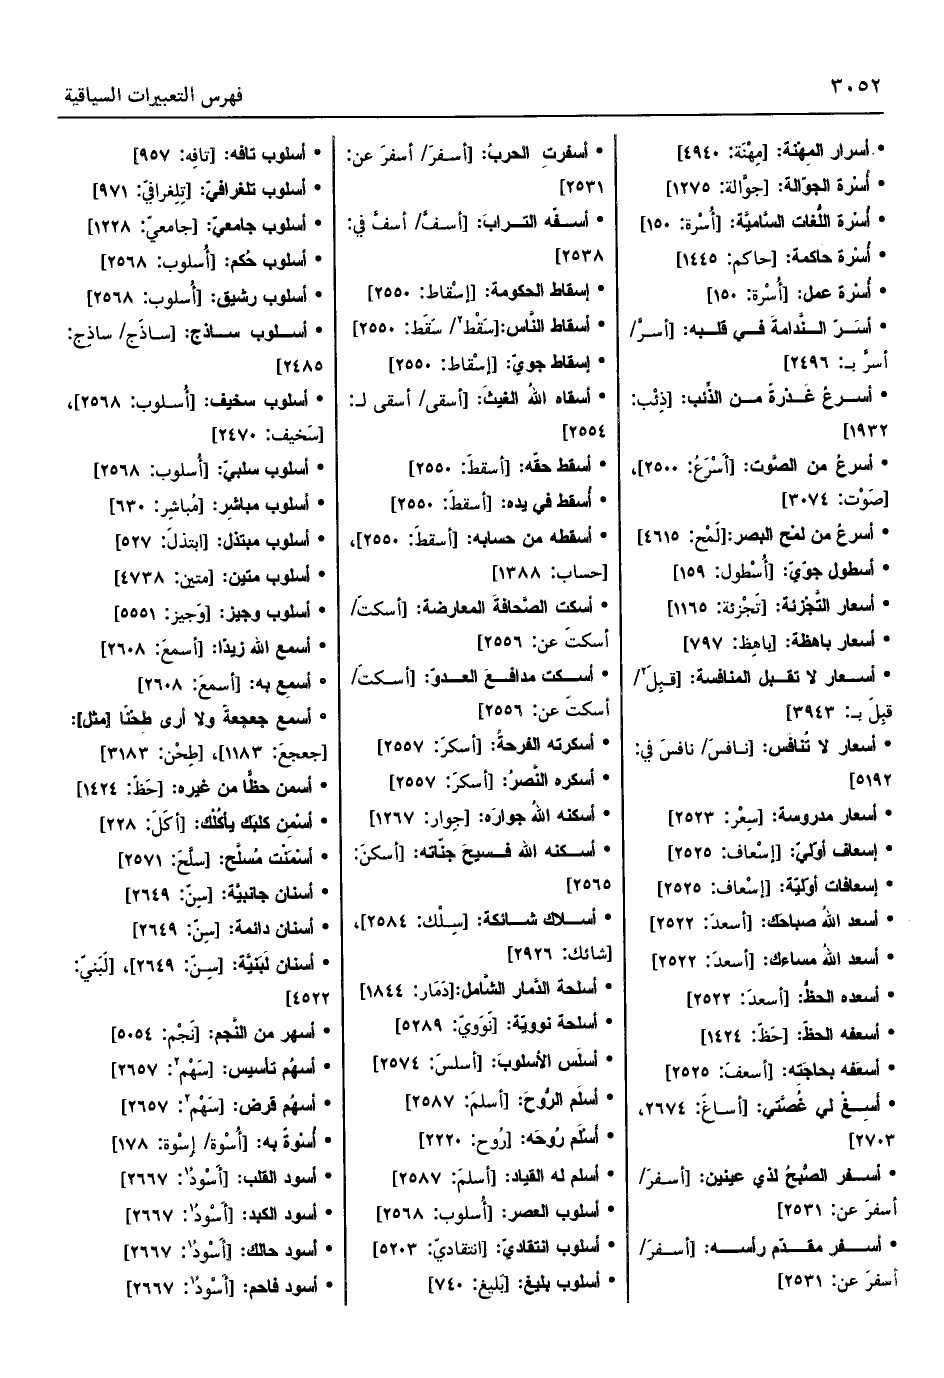 ٣٠٥٢
فهرس التعبيرات السياقية
• أسرار المهْنة: [مِهْنَة: ٤٩٤٠]
• أُسْرة الجوّالة: [جوَّالة: ١٢٧٥]
• أُسْرة اللُّغات السَّاميَّة: [أُسْرة: ١٥٠]
• أُسْرة حاكمة: [حاكم: ١٤٤٥]
• أُسْرة عمل: [أُسْرة: ١٥٠]
• أسَـرّ الـنَّدامةَ فـي قلـبه: [أسرَّ/
أسرَّ بـ: ٢٤٩٦]
• أسـرعُ غَـدْرةً مـن الذِّئب: [ذِئْب:
١٩٣٢]
• أسرعُ من الصَّوت: [أَسْرَعُ: ٢٥٠٠]،
[صَوْت: ٣٠٧٤]
• أسرعُ من لمْح البصر:[لَمْح: ٤٦١٥]
• أسطول جوّيّ: [أُسْطُول: ١٥٩]
• أسعار التَّجْزئة: [تَجْزِئة: ١١٦٥]
• أسعار باهظة: [باهِظ: ٧٩٧]
• أسـعار لا تقـبل المنافسة: [قـبِلَ٢/
قبِلَ بـ: ٣٩٤٣]
• أسعار لا تُنافَس: [نـافسَ/ نافسَ في:
٥١٩٢]
• أسعار مدروسة: [سِعْر: ٢٥٢٣]
• إسعاف أوّليّ: [إسْعاف: ٢٥٢٥]
• إسعافات أوّليّة: [إسْعاف: ٢٥٢٥]
• أسعد اللهُ صباحَك: [أسعدَ: ٢٥٢٢]
• أسعد اللهُ مساءك: [أسعدَ: ٢٥٢٢]
• أسعده الحظُّ: [أسعدَ: ٢٥٢٢]
• أسعفه الحظّ: [حَظّ: ١٤٢٤]
• أسعَفه بحاجَته: [أسعفَ: ٢٥٢٥]
• أسـغْ لي غُصَّتي: [أساغَ: ٢٦٧٤،
٢٧٠٣]
• أسـفر الصُّبحُ لذي عينين: [أسفرَ/
أسفرَ عن: ٢٥٣١]
• أسـفر مقـدّم رأسـه: [أسـفرَ/
أسفرَ عن: ٢٥٣١]
• أسفرتِ الحربُ: [أسـفرَ/ أسفرَ عن:
٢٥٣١]
• أسـفَّه التـرابَ: [أسفَّ/ أسفَّ في:
٢٥٣٨]
• إسقاط الحكومة: [إسْقاط: ٢٥٥٠]
• أسقاط النَّاس:[سَقْط٢/ سَقَط: ٢٥٥٠]
• إسقاط جويّ: [إسْقاط: ٢٥٥٠]
• أسقاه اللهُ الغيثَ: [أسقى/ أسقى لـ:
٢٥٥٤]
• أسقط حقّه: [أسقطَ: ٢٥٥٠]
• أُسقط في يده: [أسقطَ: ٢٥٥٠]
• أسقطه من حسابه: [أسقطَ: ٢٥٥٠]،
[حساب: ١٣٨٨]
• أسكت الصَّحافةَ المعارضة: [أسكتَ/
أسكتَ عن: ٢٥٥٦]
• أسـكت مدافـعَ العـدوّ: [أسـكت/
أسكتَ عن: ٢٥٥٦]
• أسكرته الفرحةُ: [أسكرَ: ٢٥٥٧]
• أسكره النَّصرُ: [أسكرَ: ٢٥٥٧]
• أسكنه اللهُ جوارَه: [جِوار: ١٢٦٧]
• أسـكنه الله فـسيحَ جنّاته: [أسكنَ:
٢٥٦٥]
• أسـلاك شـائكة: [سِـلْك: ٢٥٨٤]،
[شائك: ٢٩٢٦]
• أسلحة الدَّمار الشَّامل:[دَمَار: ١٨٤٤]
• أسلحة نوويّة: [نَوَويّ: ٥٢٨٩]
• أسلَس الأسلوبَ: [أسلسَ: ٢٥٧٤]
• أسلَم الرُّوحَ: [أسلمَ: ٢٥٨٧]
• أسلَم رُوحَه: [رُوح: ٢٢٢٠]
• أسلم له القيادَ: [أسلمَ: ٢٥٨٧]
• أسلوب العصر: [أُسلوب: ٢٥٦٨]
• أسلوب انتقاديّ: [انتقاديّ: ٥٢٠٣]
• أسلوب بليغ: [بَليغ: ٧٤٠]
• أسلوب تافه: [تافِه: ٩٥٧]
• أسلوب تلغرافيّ: [تِلِغرافيّ: ٩٧١]
• أسلوب جامعيّ: [جامعيّ: ١٢٢٨]
• أسلوب حُكم: [أُسلوب: ٢٥٦٨]
• أسلوب رشيق: [أُسلوب: ٢٥٦٨]
• أسـلوب سـاذج: [سـاذَج/ ساذِج:
٢٤٨٥]
• أسلوب سخيف: [أُسـلوب: ٢٥٦٨]،
[سَخيف: ٢٤٧٠]
• أسلوب سلبيّ: [أُسلوب: ٢٥٦٨]
• أسلوب مباشر: [مُباشِر: ٦٣٠]
• أسلوب مبتذل: [ابتذلَ: ٥٢٧]
• أسلوب متين: [متين: ٤٧٣٨]
• أسلوب وجيز: [وَجيز: ٥٥٥١]
• أسمع الله زيدًا: [أسمعَ: ٢٦٠٨]
• أسمِع به: [أسمعَ: ٢٦٠٨]
• أسمع جعجعةً ولا أرى طحْنًا [مثل]:
[جعجعَ: ١١٨٣]، [طِحْن: ٣١٨٣]
• أسمن حظًّا من غيره: [حَظّ: ١٤٢٤]
• أسْمِن كلبَك يأكُلْك: [أكَلَ: ٢٢٨]
• أسْمَنْت مُسلَّح: [سلَّحَ: ٢٥٧١]
• أسنان جانبيَّة: [سِنّ: ٢٦٤٩]
• أسنان دائمة: [سِنّ: ٢٦٤٩]
• أسنان لَبَنيَّة: [سِـنّ: ٢٦٤٩]، [لَبَنيّ:
٤٥٢٢]
• أسهر من النَّجم: [نَجْم: ٥٠٥٤]
• أسهُم تأسيس: [سَهْم٢: ٢٦٥٧]
• أسهُم قرض: [سَهْم٢: ٢٦٥٧]
• أُسْوةً به: [أُسْوة/ إسْوة: ١٧٨]
• أسود القلب: [أَسْودُ١: ٢٦٦٧]
• أسود الكبد: [أَسْودُ١: ٢٦٦٧]
• أسود حالك: [أَسْودُ١: ٢٦٦٧]
• أسود فاحم: [أَسْودُ١: ٢٦٦٧]